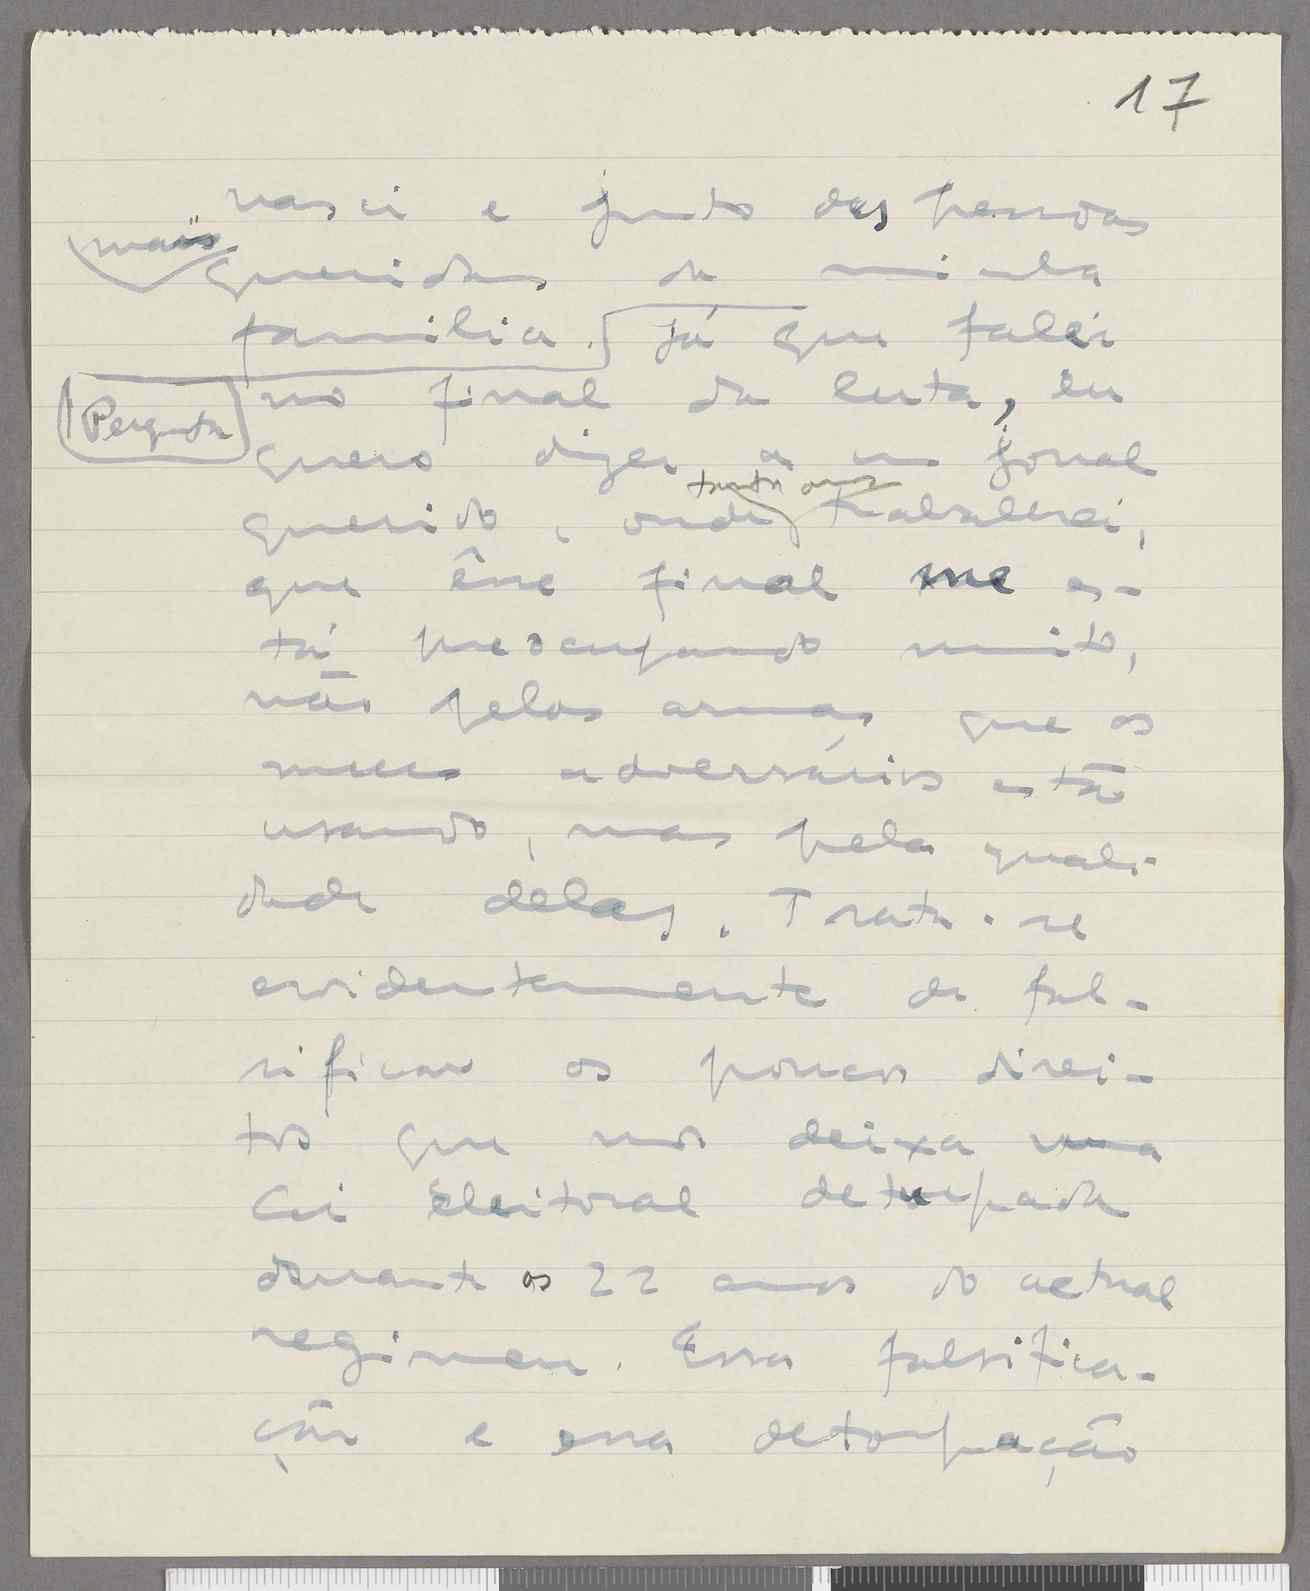 17
nasci e junto das pessoas
mais
queridas da minha
familia. Já que falei
Pergunta
no final da luta, eu
quero dizer a um jornal
tanto anos
querido, onde trabalhei,
que êsse final me es-
tá preocupando muito,
não pelas armas que os
meus adversários estão
usando, mas pela quali-
dade delas. Trata-se
evidentemente de fal-
sificar os poucos direi-
tos que nos deixa uma
Lei Eleitoral deturpada
durante os 22 anos do actual
regimen. Essa falsifica-
ção e essa deturpação